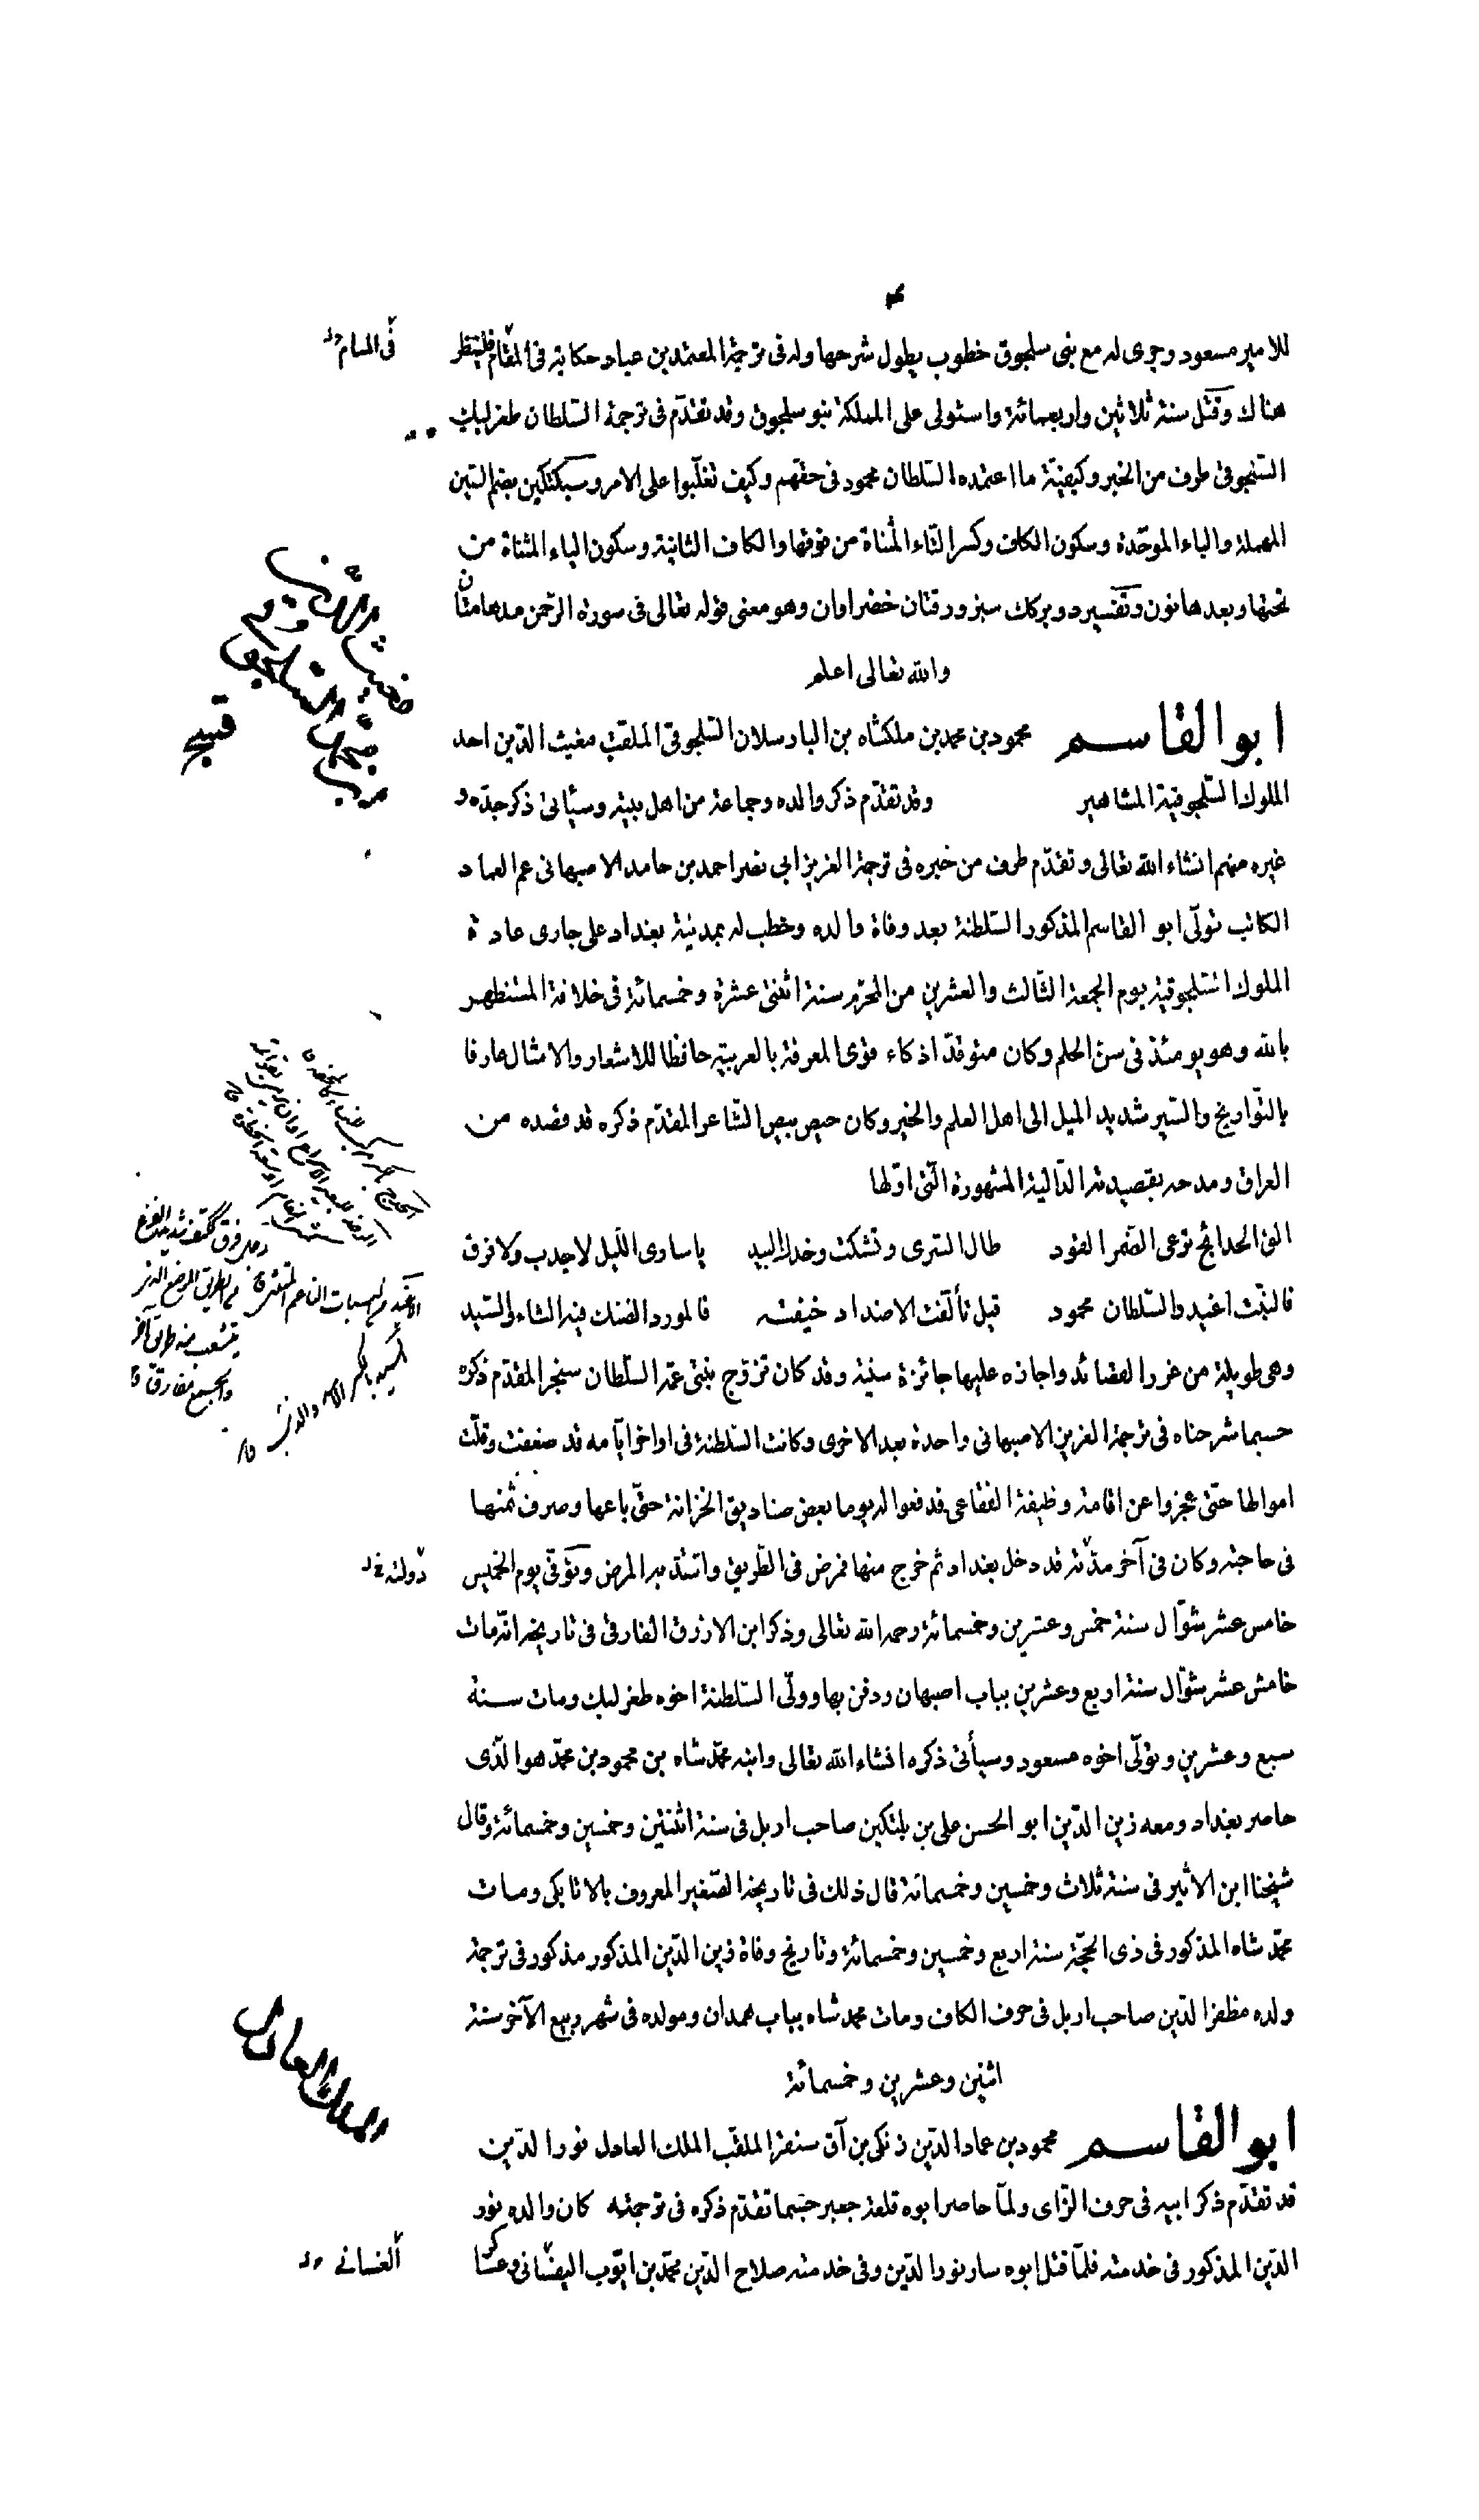 للامير مسعود وجرى له مع بنى سلجوق خطوب يطول شرحها وله فى ترجمة المعتمد بن عباد حكاية فى المقام فلينظر
فى المنام
هناك وقتل سنة ثلاثين واربعمائة واستولى على المملكة بنو سلجوق وقد تقدّم فى ترجمة السّلطان طغرلبك
السّلجوقى طرف من الخبر وكيفيّة ما اعتمده السّلطان محمود فى حقّهم وكيف تغلّبوا على الامر وسبكتكين بضم السّين
المهملة والباء الموحّدة وسكون الكاف وكسر التّاء المثناة من فوقها والكاف الثانية وسكون الياء المثناة من
تحتها وبعدها نون وتفسير دو برك سبز ورقتان خضراوان وهو معنى قوله تعالى فى سورة الرّحمن مدهامتان
والله تعالى اعلم
ابو القاسم محمود بن محمد بن ملكشاه بن الب ارسلان السّلجوقى الملقّب مغيث الدّين احد
الملوك السّلجوقية المشاهير وقد تقدّم ذكر والده وجماعة من اهل بيته وسيأتى ذكر جدّه و
غيره منهم انشاء الله تعالى وتقدّم طرف من خبره فى ترجمة العزيز ابى نصر احمد بن حامد الاصبهانى عم العماد
الكاتب تولّى ابو القاسم المذكور السّلطنة بعد وفاة والده وخطب له بمدينة بغداد على جارى عادة
الملوك السّلجوقية يوم الجمعة الثّالث والعشرين من المحرّم سنة اثنتى عشرة وخمسمائة فى خلافة المستظهر
بالله وهو يومئذ فى سنّ الحلم وكان متوقّدا ذكاء قوى المعرفة بالعربيّة حافظا للاشعار والامثال عارفا
بالتّواريخ والسّير شديد الميل الى اهل العلم والخير وكان حيص بيص الشّاعر المقدّم ذكره قد قصده من
العراق ومدحه بقصيدته الدّالية المشهورة الّتى اوّلها
الق الحدائج ترعى الضّمر القود طال السّرى وتشكت وخدك البيد يا سارى اللّيل لا جدب ولا فرق
فالنبت اغيد والسّلطان محمود قيل تألّفت الاضداد خيفته فالمورد الضنك فيه الشاء والسّيد
وهى طويلة من غرر القصائد واجازه عليها جائزة سنيّة وقد كان تزوّج بنتى عمّه السّلطان سنجر المقدّم ذكره
حسبما شرحناه فى ترجمة العزيز الاصبهانى واحدة بعد الاخرى وكانت السّلطنة فى اواخر ايّامه قد ضعفت وقلّت
اموالها حتّى عجزوا عن اقامة وظيفة الفقاعى فدفعوا له يوما بعض صناديق الخزانة حتّى باعها وصرف ثمنها
فى حاجته وكان فى آخر مدّته قد دخل بغداد ثم خرج منها فمرض فى الطّريق واشتدّ به المرض وتوفّى يوم الخميس
دولته
خامس عشر شوّال سنة خمس وعشرين وخمسمائة رحمه الله تعالى وذكر ابن الازرق الفارقى فى تاريخه انّه مات
خامس عشر شوّال سنة اربع وعشرين بباب اصبهان ودفن بها وولّى السّلطنة اخوه طغرلبك ومات سنة
سبع وعشرين وتولّى اخوه مسعود وسيأتى ذكره انشاء الله تعالى وابنه محمّد شاه بن محمود بن محمّد هو الّذى
حاصر بغداد ومعه زين الدّين ابو الحسن على بن بلتكين صاحب اربل فى سنة اثنتين وخمسين وخمسمائة وقال
شيخنا ابن الاثير فى سنة ثلاث وخمسين وخمسمائة قال ذلك فى تاريخه الصّغير المعروف بالاتابكى ومات
محمّد شاه المذكور فى ذى الحجّة سنة اربع وخمسين وخمسمائة وتاريخ وفاة زين الدّين المذكور مذكور فى ترجمة
ولده مظفر الدّين صاحب اربل فى حرف الكاف ومات محمد شاه بباب همدان ومولده فى شهر ربيع الآخر سنة
اثنين وعشرين وخمسمائة
الملك العادل
ابو القاسم محمود بن عماد الدّين زنكى بن آق سنقر الملقّب الملك العادل نور الدّين
قد تقدّم ذكر ابيه فى حرف الزّاى ولمّا حاصر ابوه قلعة جعبر حسبما تقدّم ذكره فى ترجمته كان والده نور
الدّين المذكور فى خدمته فلمّا قتل ابوه سار نور الدّين وفى خدمته صلاح الدّين محمّد بن ايّوب اليغسانى وعساكر
الغسانى